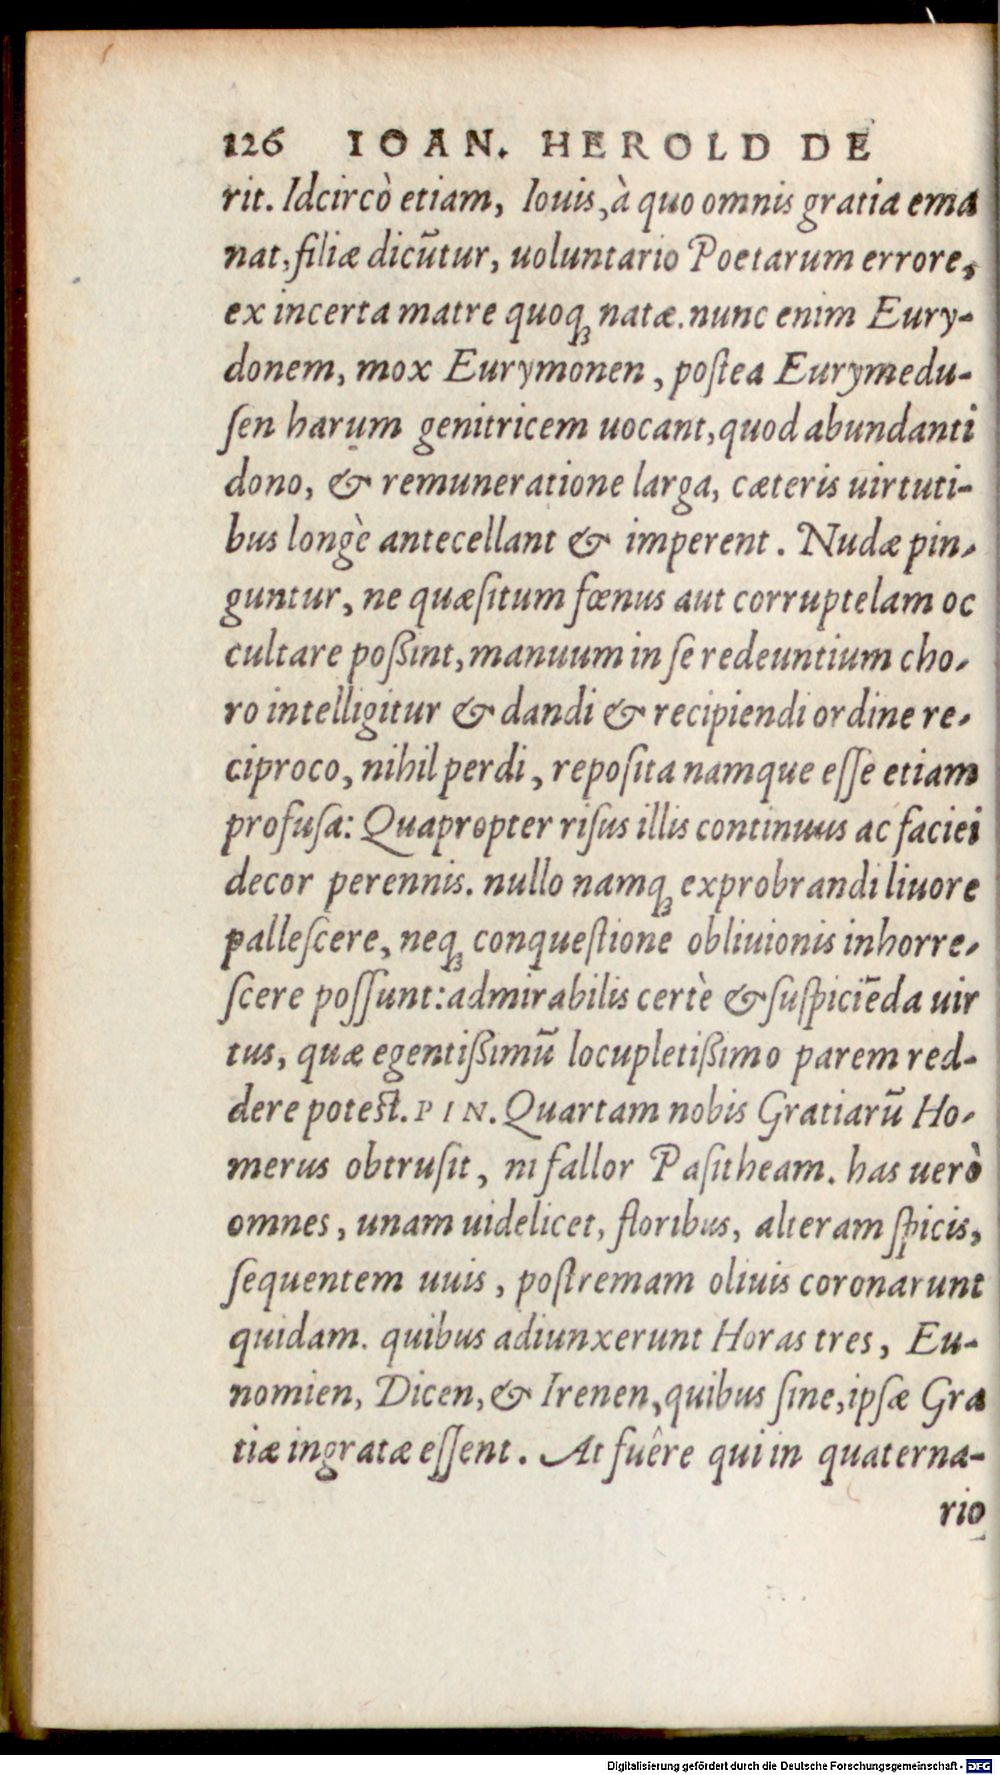 126 IOAN. HEROLD DE
rit. Idcircò etiam, Iouis, à quo omnis gratia ema
nat, filiæ dicūtur, uoluntario Poetarum errore,
ex incerta matre quoq; natæ. nunc enim Eury-
donem, mox Eurymonen, poſtea Eurymedu-
ſen harum genitricem uocant, quod abundanti
dono, & remuneratione larga, cæteris uirtuti-
bus longè antecellant & imperent. Nudæ pin-
guntur, ne quæſitum fœnus aut corruptelam oc
cultare poßint, manuum in ſe redeuntium cho-
ro intelligitur & dandi & recipiendi ordine re-
ciproco, nihil perdi, repoſita namque eſſe etiam
profuſa: Quapropter riſus illis continuus ac faciei
decor perennis. nullo namq; exprobrandi liuore
palleſcere, neq; conqueſtione obliuionis inhorre-
ſcere poſſunt: admirabilis certè & ſuſpiciēda uir
tus, quæ egentißimū locupletißimo parem red-
dere poteſt. PIN. Quartam nobis Gratiarū Ho-
merus obtruſit, ni fallor Paſitheam. has uerò
omnes, unam uidelicet, floribus, alteram ſpicis,
ſequentem uuis, poſtremam oliuis coronarunt
quidam. quibus adiunxerunt Horas tres, Eu-
nomien, Dicen, & Irenen, quibus ſine, ipſæ Gra
tiæ ingratæ eſſent. At fuêre qui in quaterna-
rio
Digitalisierung gefördert durch die Deutsche Forschungsgemeinschaft - DFG